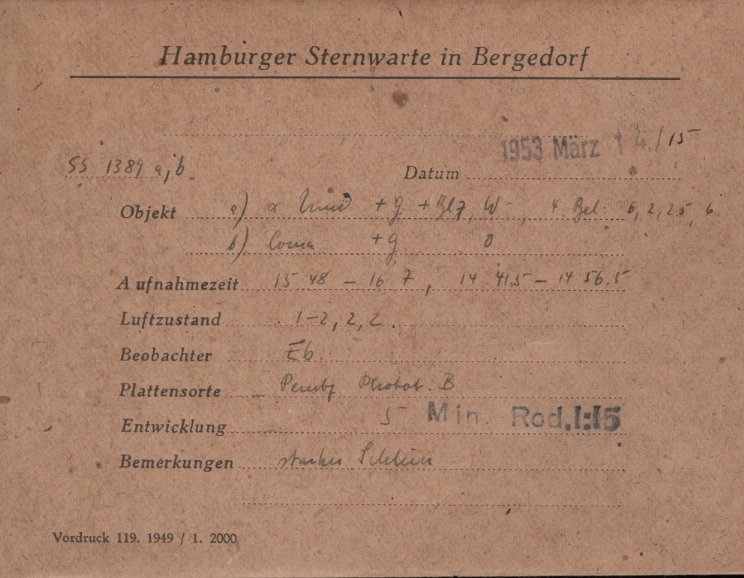 Hamburger Sternwarte in Bergedorf
1953 März 14./15
SS 1389 a, b. Datum
Objekt a) α + g + 4 Bel: 6, 2, 25, 6
b) Coma + g 0
Aufnahmezeit 15 48 – 16 7, 14 41.5 – 14 56.5
Luftzustand 1–2, 2, 2.
Beobachter Eb.
Plattensorte Perutz B
Entwicklung 5 Min. Rod. 1:15
Bemerkungen starker Schleier
Vordruck 119. 1949 / 1. 2000